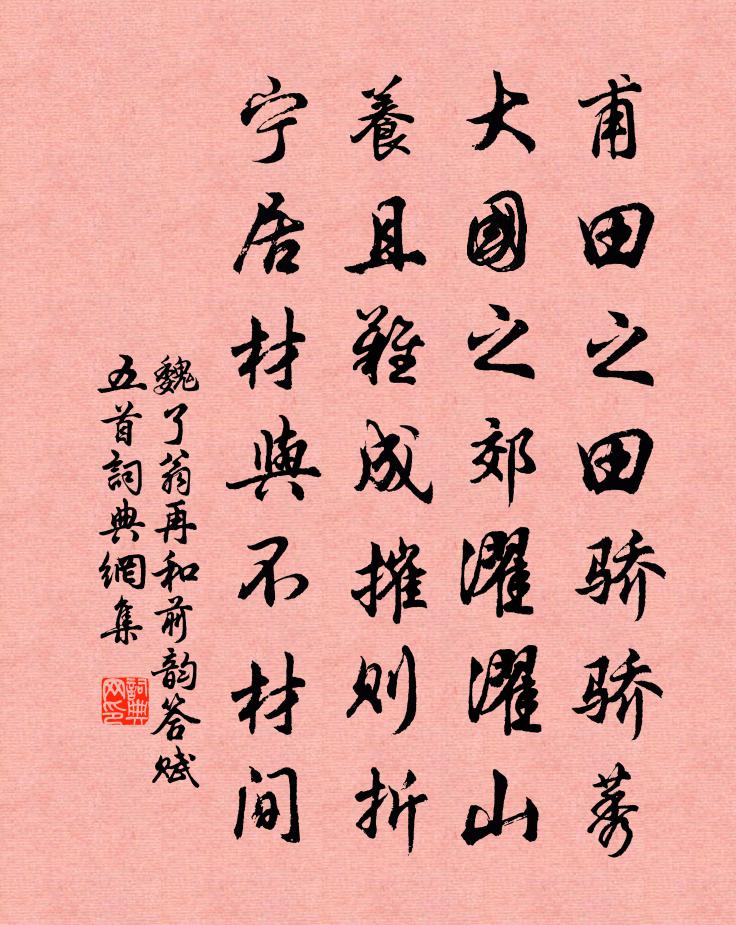 甫田之田骄骄莠
大國之郊濯濯山
養且難成摧则折
宁居材與不材间
魏了翁再和前韵答赋
五首詞典網集
詞典网印